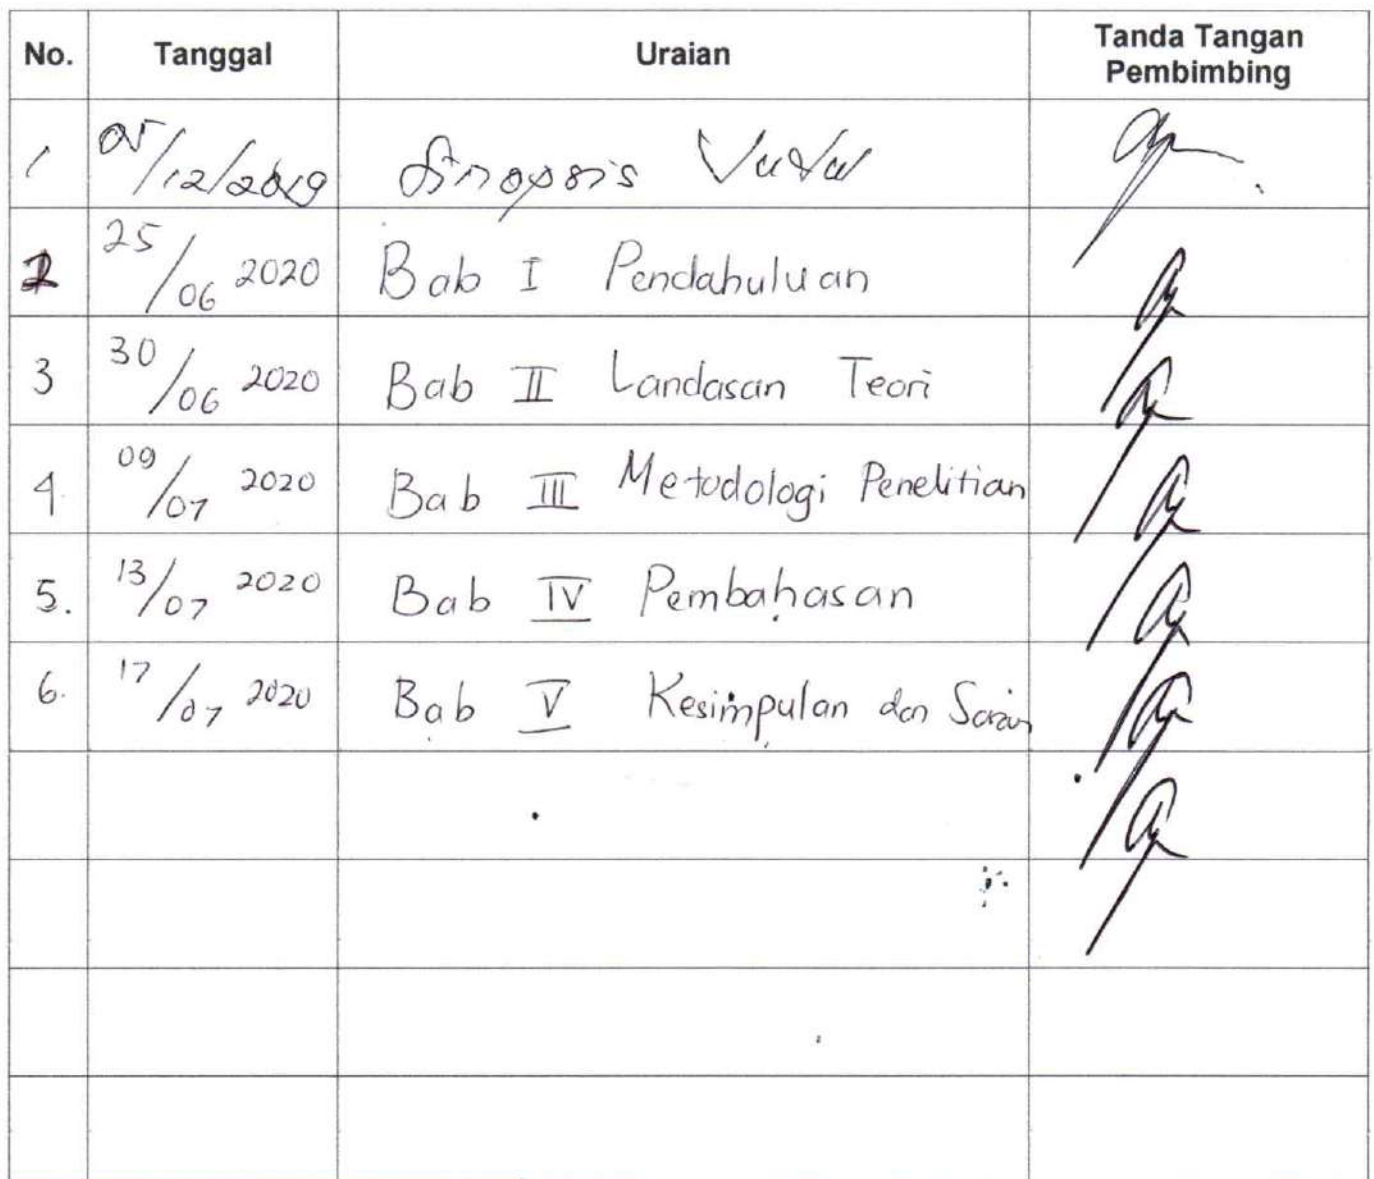 No. Tanggal Uraian Tanda Tangan
Pembimbing
1 05/12/2019 Sinopsis Judul
2 25/06 2020 Bab I Pendahuluan
3 30/06 2020 Bab II Landasan Teori
4. 09/07 2020 Bab III Metodologi Penelitian
5. 13/07 2020 Bab IV Pembahasan
6. 17/07 2020 Bab V Kesimpulan dan Saran